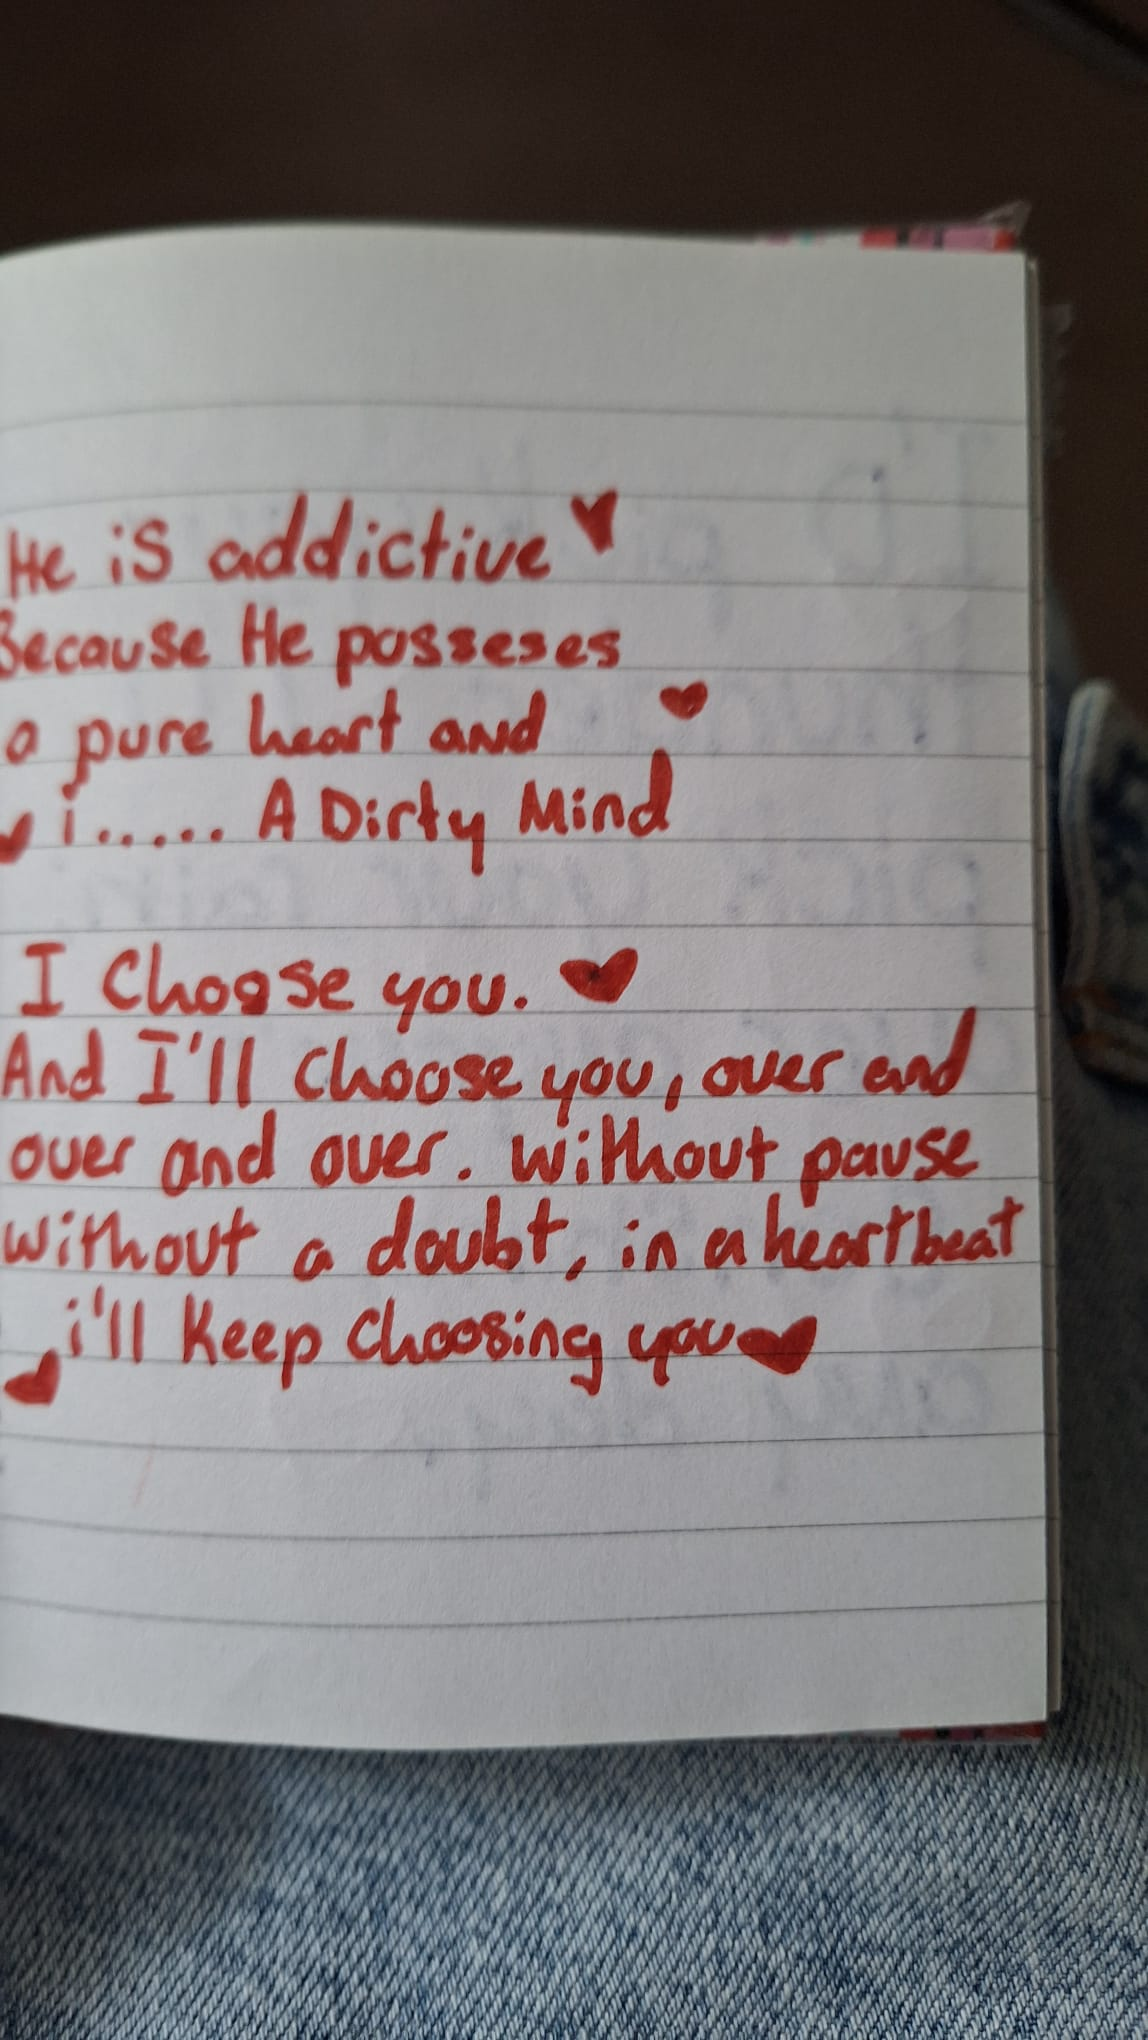 He is addictive
Because He posseses
a pure heart and
i..... A Dirty Mind
I Choose you.
And I'll choose you, over and
over and over. Without pause
without a doubt, in a heartbeat
i'll Keep Choosing you